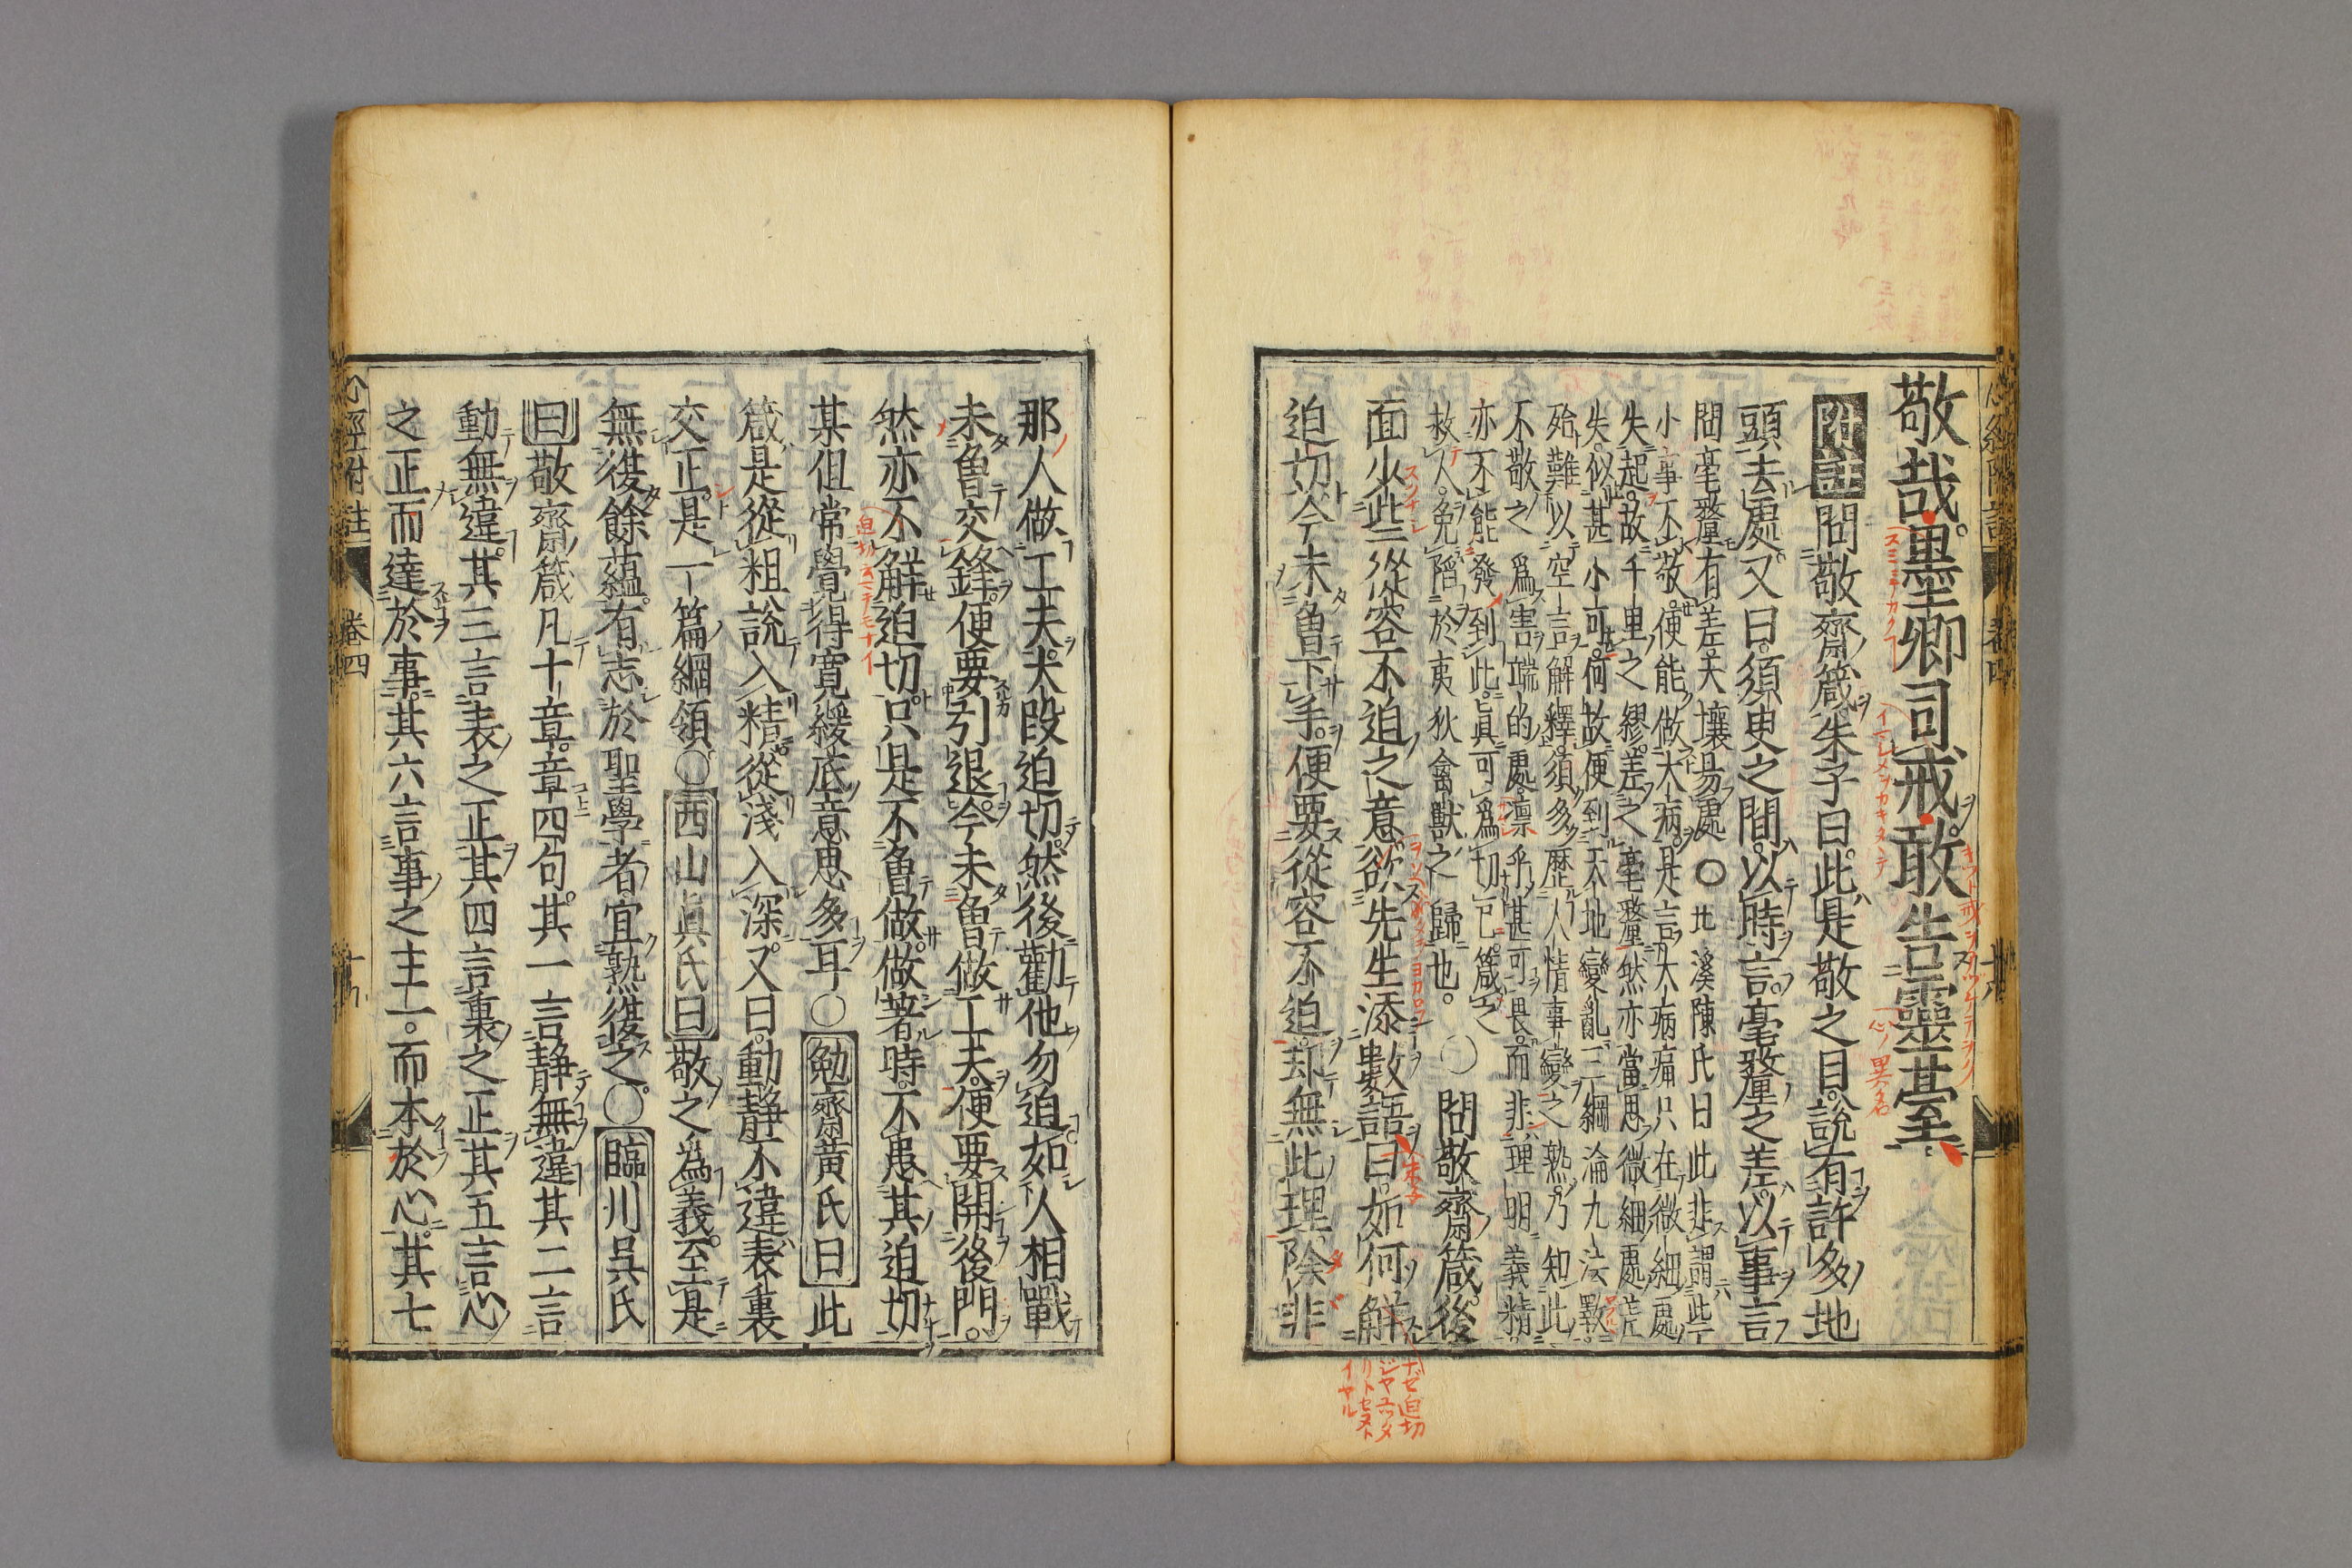 敬哉墨卿司戒敢告靈臺
附註問敬齋箴朱子曰此是敬之目說有許多地
頭去處又曰須臾之間以時言毫釐之差以事言
問毫釐有差天壤易處○北溪陳氏曰此非謂些
小事不敬便能做大病是言大病痛只在微細處
失起故千里之繆差之毫釐然亦當思微細處差
失似甚小可何故便到天地變亂三綱淪九法斁
殆難以空言解釋須多歷人情事變之熟乃知此
不敬之爲害端的處凛乎甚可畏而非理明義精
亦不能發到此眞可爲切己箴之
救人免陷於夷狄禽獸之歸也○問敬齋箴後
面少些從容不迫之意欲先生添數語曰如何解
迫切今未魯下手便要從容不迫却無此理除非
那人做工夫大段迫切然後勸他勿迫如人相戰
未魯交鋒便要引退今未魯做工夫便要開後門
然亦不解迫切只是不魯做做著時不患其迫切
某但常覺得寛緩底意思多耳○勉齋黄氏曰此
箴是從粗說入精從淺入深又曰動静不違表裏
交正是一篇綱領○西山眞氏曰敬之爲義至是
無復餘蘊有志於聖學者宜熟復之○臨川吳氏
曰敬齋箴凡十章章四句其一言静無違其二言
動無違其三言表之正其四言裏之正其五言心
之正而達於事其六言事之主一而本於心其七
心經附註 卷四